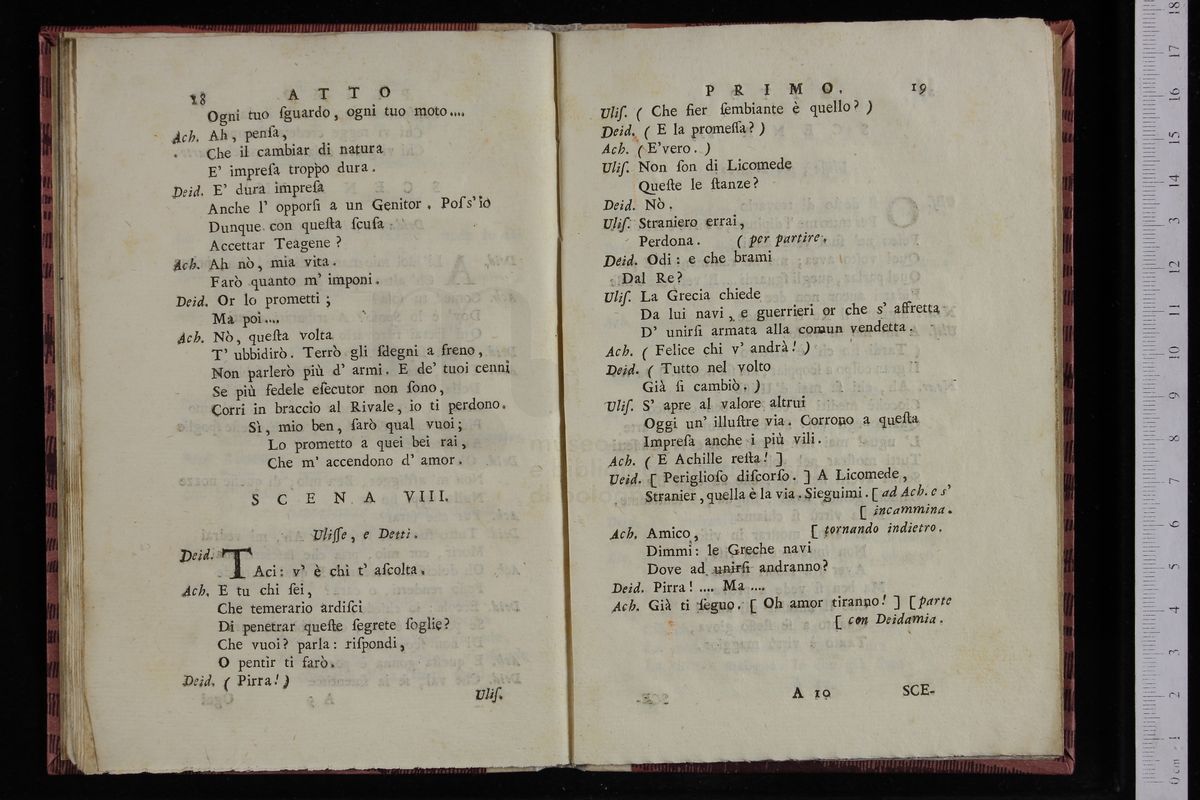 18 ATTO
Ogni tuo ſguardo, ogni tuo moto....
Ach. Ah, penſa,
Che il cambiar di natura
E' impreſa troppo dura.
Deid. E' dura impreſa
Anche l' opporſi a un Genitor. Poſs'io
Dunque con queſta ſcuſa
Accettar Teagene?
Ach. Ah nò, mia vita.
Farò quanto m' imponi.
Deid. Or lo prometti;
Ma poi....
Ach. Nò, queſta volta
T' ubbidirò. Terrò gli ſdegni a freno,
Non parlerò più d' armi. E de' tuoi cenni
Se più fedele eſecutor non ſono,
Corri in braccio al Rivale, io ti perdono.
Sì, mio ben, ſarò qual vuoi;
Lo prometto a quei bei rai,
Che m' accendono d' amor.
SCENA VIII.
Uliſſe, e Detti.
Deid. TAci: v' è chi t' aſcolta.
Ach. E tu chi ſei,
Che temerario ardiſci
Di penetrar queſte ſegrete ſoglie?
Che vuoi? parla: riſpondi,
O pentir ti farò.
Deid. ( Pirra! )
Uliſ.
PRIMO. 19
Uliſ. ( Che fier ſembiante è quello? )
Deid. ( E la promeſſa? )
Ach. ( E'vero. )
Uliſ. Non ſon di Licomede
Queſte le ſtanze?
Deid. Nò.
Uliſ. Straniero errai,
Perdona. ( per partire.
Deid. Odi: e che brami
Dal Re?
Uliſ. La Grecia chiede
Da lui navi, e guerrieri or che s' affretta
D' unirſi armata alla comun vendetta.
Ach. ( Felice chi v' andrà! )
Deid. ( Tutto nel volto
Già ſi cambiò. )
Uliſ. S' apre al valore altrui
Oggi un' illuſtre via. Corrono a queſta
Impreſa anche i più vili.
Ach. ( E Achille reſta! ]
Deid. [ Periglioſo diſcorſo. ] A Licomede,
Stranier, quella è la via. Sieguimi. [ ad Ach. e s'
[ incammina.
Ach. Amico, [ tornando indietro.
Dimmi: le Greche navi
Dove ad unirſi andranno?
Deid. Pirra! .... Ma ....
Ach. Già ti ſeguo. [ Oh amor tiranno! ] [ parte
[ con Deidamia.
A 10 SCE-